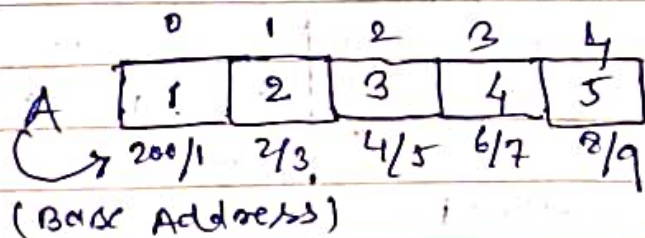 0 1 2 3 4
A 1 2 3 4 5
200/1 2/3 4/5 6/7 8/9
(Base Address)